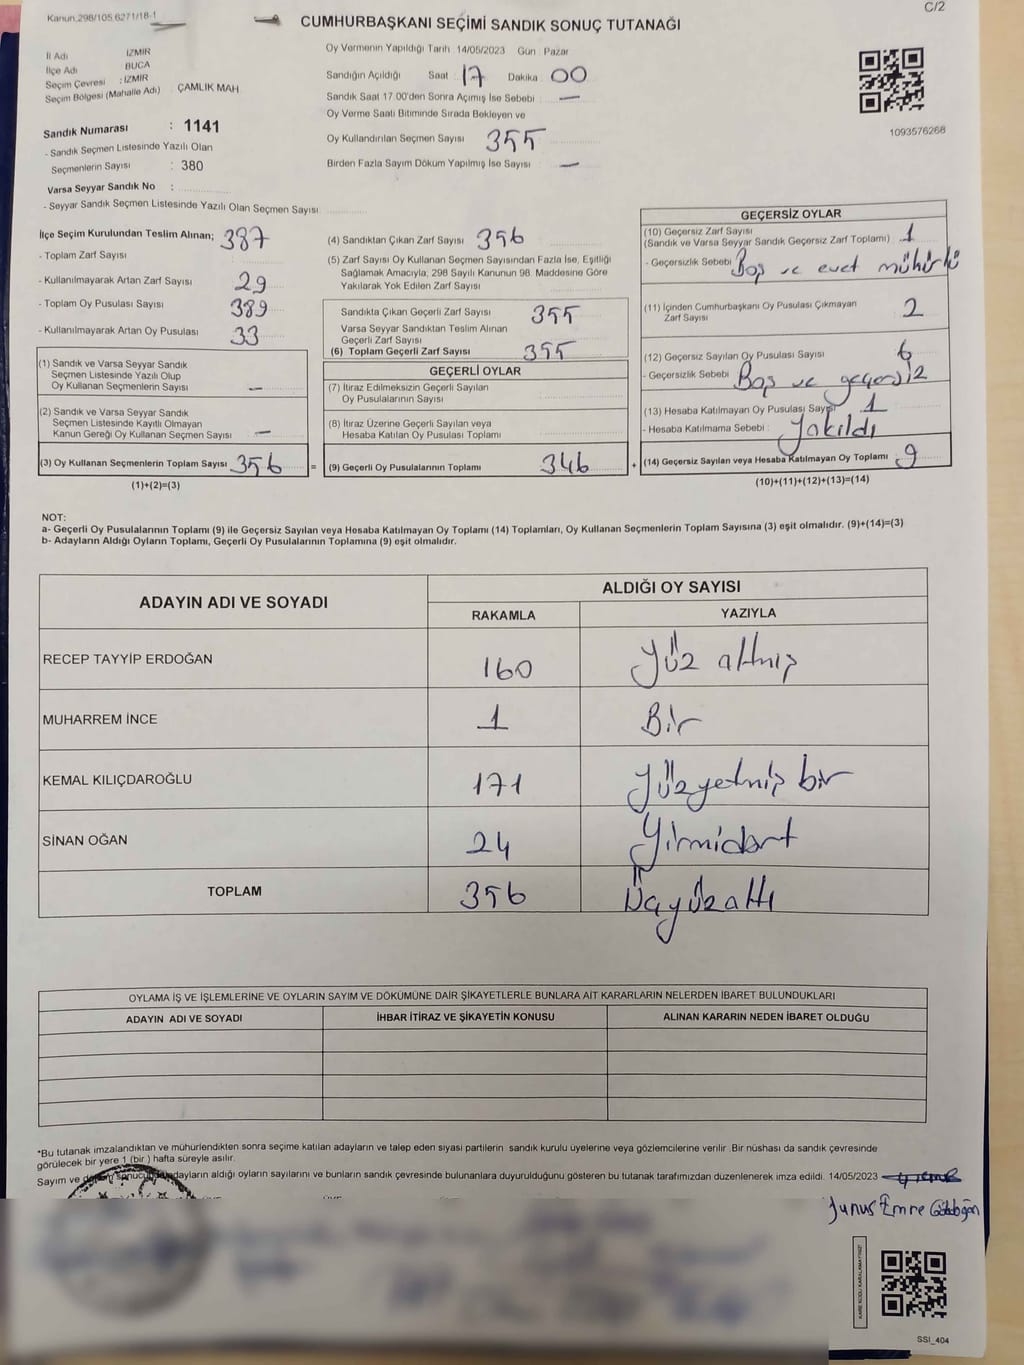 Kanun 298/105,6271/18-1
C/2
CUMHURBAŞKANI SEÇİMİ SANDIK SONUÇ TUTANAĞI
İl Adı İZMİR
İlçe Adı BUCA
Seçim Çevresi : İZMİR
Seçim Bölgesi (Mahalle Adı) ÇAMLIK MAH.
Sandık Numarası : 1141
- Sandık Seçmen Listesinde Yazılı Olan
Seçmenlerin Sayısı : 380
Varsa Seyyar Sandık No :
- Seyyar Sandık Seçmen Listesinde Yazılı Olan Seçmen Sayısı
Oy Vermenin Yapıldığı Tarih 14/05/2023 Gün : Pazar
Sandığın Açıldığı Saat : 17 Dakika : 00
Sandık Saat 17.00'den Sonra Açımış İse Sebebi : —
Oy Verme Saati Bitiminde Sırada Bekleyen ve
Oy Kullandırılan Seçmen Sayısı 355
Birden Fazla Sayım Döküm Yapılmış İse Sayısı —
1093576268
İlçe Seçim Kurulundan Teslim Alınan; 387
- Toplam Zarf Sayısı
- Kullanılmayarak Artan Zarf Sayısı 29
- Toplam Oy Pusulası Sayısı 389
- Kullanılmayarak Artan Oy Pusulası 33
(1) Sandık ve Varsa Seyyar Sandık
Seçmen Listesinde Yazılı Olup
Oy Kullanan Seçmenlerin Sayısı —
(2) Sandık ve Varsa Seyyar Sandık
Seçmen Listesinde Kayıtlı Olmayan
Kanun Gereği Oy Kullanan Seçmen Sayısı —
(3) Oy Kullanan Seçmenlerin Toplam Sayısı 356
(1)+(2)=(3)
(4) Sandıktan Çıkan Zarf Sayısı 356
(5) Zarf Sayısı Oy Kullanan Seçmen Sayısından Fazla İse, Eşitliği
Sağlamak Amacıyla; 298 Sayılı Kanunun 98. Maddesine Göre
Yakılarak Yok Edilen Zarf Sayısı
Sandıkta Çıkan Geçerli Zarf Sayısı 355
Varsa Seyyar Sandıktan Teslim Alınan
Geçerli Zarf Sayısı
(6) Toplam Geçerli Zarf Sayısı 355
GEÇERLİ OYLAR
(7) İtiraz Edilmeksizin Geçerli Sayılan
Oy Pusulalarının Sayısı
(8) İtiraz Üzerine Geçerli Sayılan veya
Hesaba Katılan Oy Pusulası Toplamı
= (9) Geçerli Oy Pusulalarının Toplamı 346 +
GEÇERSİZ OYLAR
(10) Geçersiz Zarf Sayısı
(Sandık ve Varsa Seyyar Sandık Geçersiz Zarf Toplamı) 1
- Geçersizlik Sebebi Boş ve evet mühürlü
(11) İçinden Cumhurbaşkanı Oy Pusulası Çıkmayan
Zarf Sayısı 2
(12) Geçersiz Sayılan Oy Pusulası Sayısı 6
- Geçersizlik Sebebi Boş ve geçersiz
(13) Hesaba Katılmayan Oy Pusulası Sayısı 1
- Hesaba Katılmama Sebebi : Yakıldı
(14) Geçersiz Sayılan veya Hesaba Katılmayan Oy Toplamı 9
(10)+(11)+(12)+(13)=(14)
NOT:
a- Geçerli Oy Pusulalarının Toplamı (9) ile Geçersiz Sayılan veya Hesaba Katılmayan Oy Toplamı (14) Toplamları, Oy Kullanan Seçmenlerin Toplam Sayısına (3) eşit olmalıdır. (9)+(14)=(3)
b- Adayların Aldığı Oyların Toplamı, Geçerli Oy Pusulalarının Toplamına (9) eşit olmalıdır.
ADAYIN ADI VE SOYADI
ALDIĞI OY SAYISI
RAKAMLA YAZIYLA
RECEP TAYYİP ERDOĞAN 160 Yüz altmış
MUHARREM İNCE 1 Bir
KEMAL KILIÇDAROĞLU 171 Yüzyetmiş bir
SİNAN OĞAN 24 Yirmidört
TOPLAM 356 Üçyüzaltı
OYLAMA İŞ VE İŞLEMLERİNE VE OYLARIN SAYIM VE DÖKÜMÜNE DAİR ŞİKAYETLERLE BUNLARA AİT KARARLARIN NELERDEN İBARET BULUNDUKLARI
ADAYIN ADI VE SOYADI İHBAR İTİRAZ VE ŞİKAYETİN KONUSU ALINAN KARARIN NEDEN İBARET OLDUĞU
*Bu tutanak imzalandıktan ve mühürlendikten sonra seçime katılan adayların ve talep eden siyasi partilerin sandık kurulu üyelerine veya gözlemcilerine verilir. Bir nüshası da sandık çevresinde
görülecek bir yere 1 (bir) hafta süreyle asılır.
Sayım ve adayların aldığı oyların sayılarını ve bunların sandık çevresinde bulunanlara duyurulduğunu gösteren bu tutanak tarafımızdan düzenlenerek imza edildi. 14/05/2023
Yunus Emre
KARE KODU KARALAMAYINIZ!
SSI_404